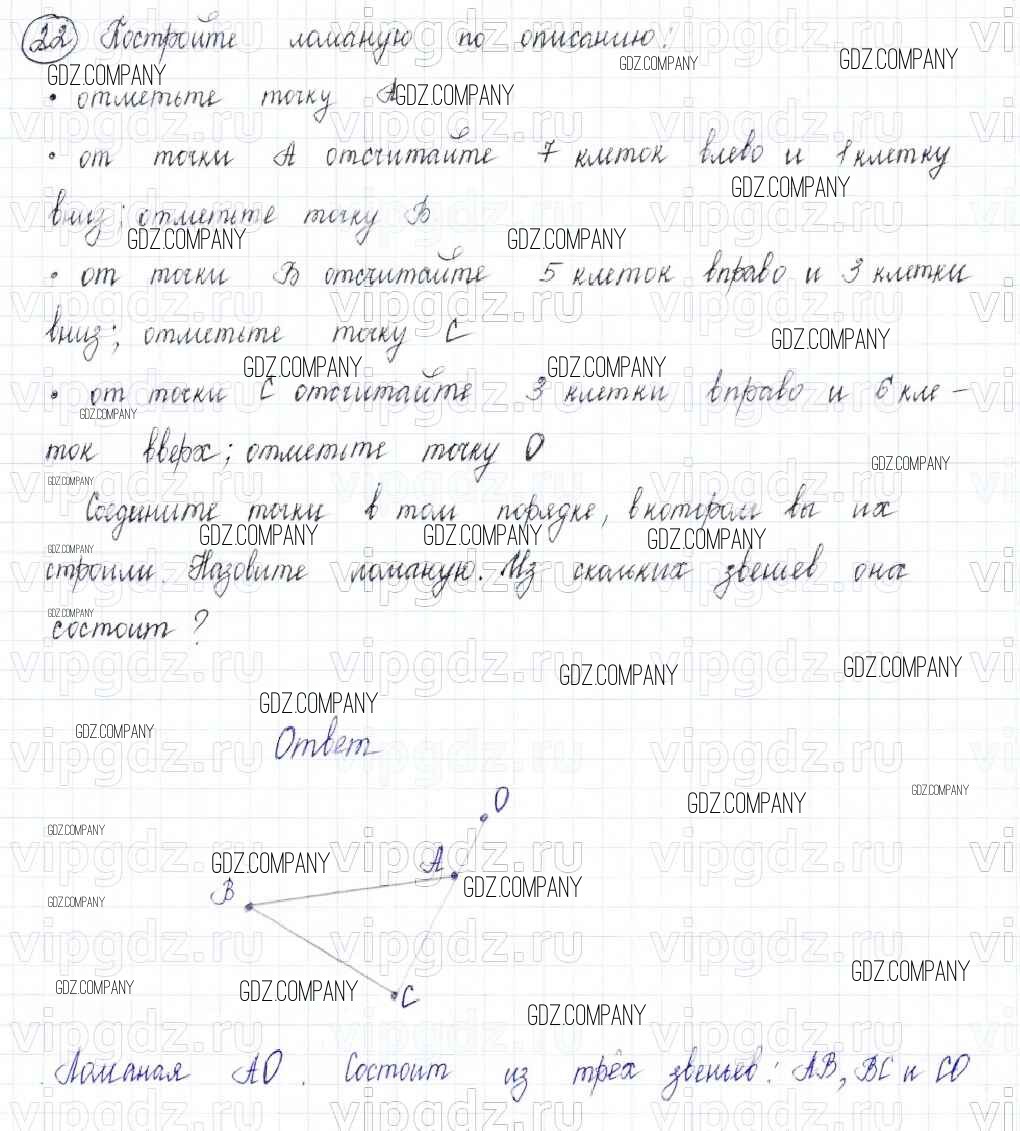 22 Постройте ломаную по описанию:
• отметьте точку А
• от точки А отсчитайте 7 клеток влево и 1 клетку
вниз; отметьте точку В
• от точки В отсчитайте 5 клеток вправо и 3 клетки
вниз; отметьте точку С
• от точки С отсчитайте 3 клетки вправо и 6 кле-
ток вверх; отметьте точку О
Соедините точки в том порядке, в котором вы их
строили. Назовите ломаную. Из скольких звеньев она
состоит?
Ответ
О
А
В
С
Ломаная АО. Состоит из трёх звеньев: АВ, ВС и СО
GDZ.COMPANY
vipgdz.ru